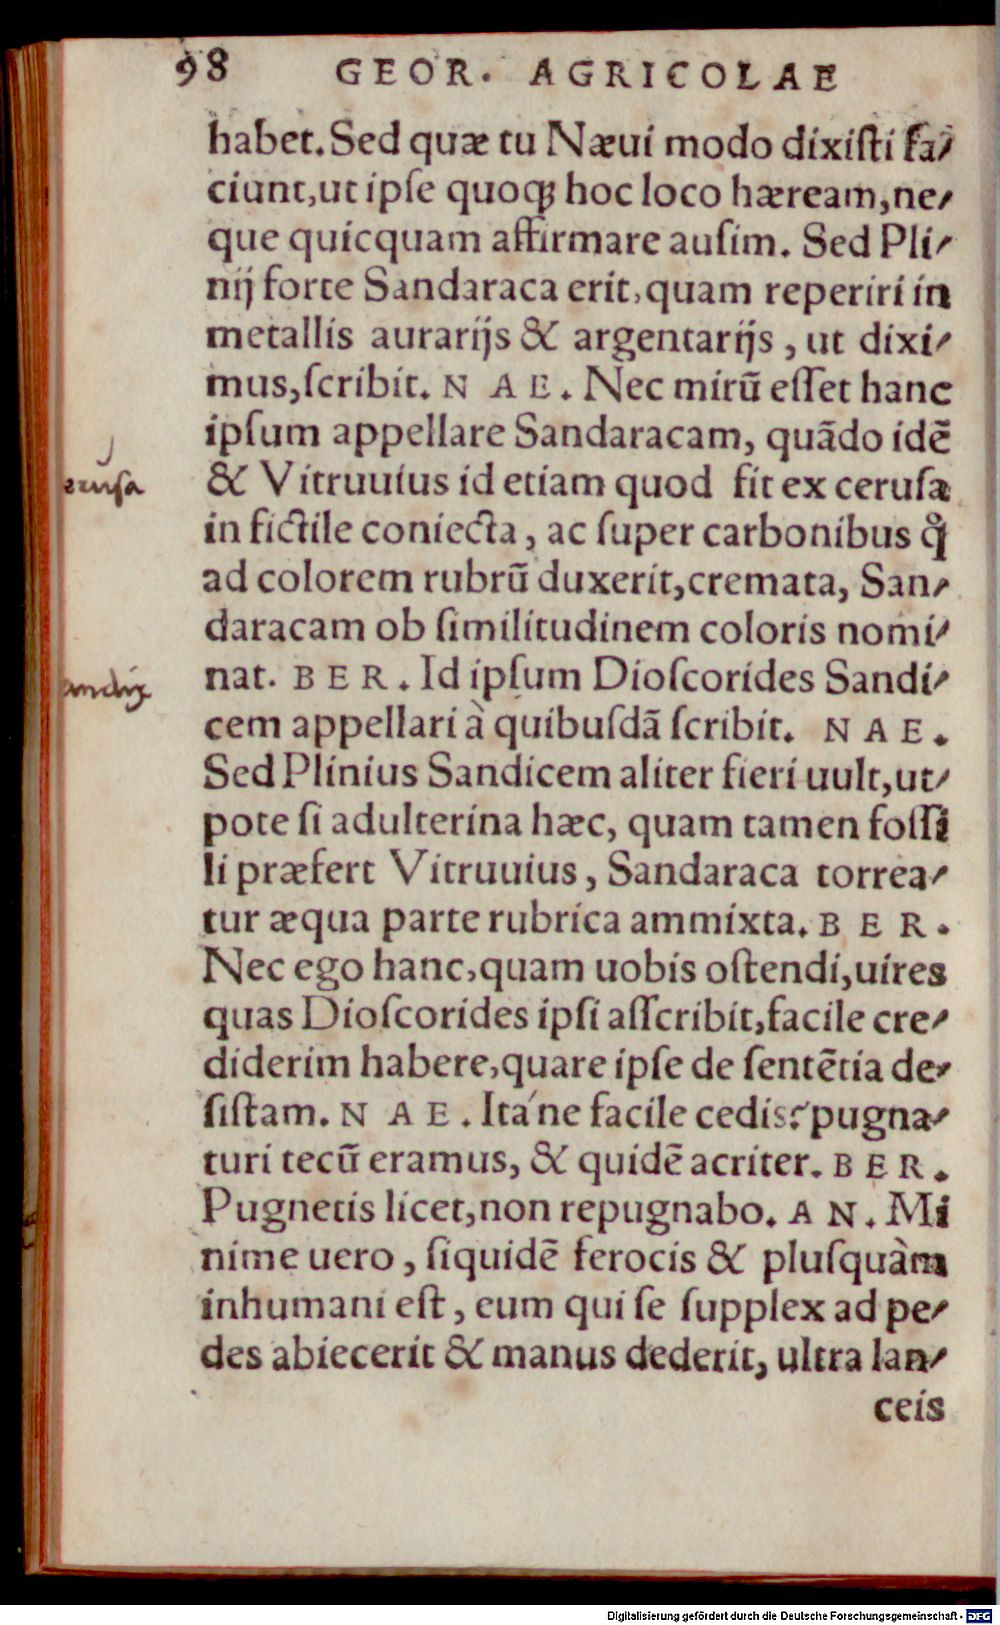 98 GEOR. AGRICOLAE
habet. Sed quæ tu Næui modo dixiſti fa⸗
ciunt, ut ipſe quoqꝫ hoc loco hæream, ne⸗
que quicquam affirmare auſim. Sed Pli⸗
nij forte Sandaraca erit, quam reperiri in
metallis aurarijs & argentarijs, ut dixi⸗
mus, ſcribit. NAE. Nec mirū eſſet hanc
ipſum appellare Sandaracam, quādo idē
& Vitruuius id etiam quod fit ex ceruſa
in fictile coniecta, ac ſuper carbonibus ꝙ̃
ad colorem rubrū duxerit, cremata, San⸗
daracam ob ſimilitudinem coloris nomi⸗
nat. BER. Id ipſum Dioſcorides Sandi⸗
cem appellari à quibuſdā ſcribit. NAE.
Sed Plinius Sandicem aliter fieri uult, ut⸗
pote ſi adulterina hæc, quam tamen foſſi
li præfert Vitruuius, Sandaraca torrea⸗
tur æqua parte rubrica ammixta. BER.
Nec ego hanc, quam uobis oſtendi, uires
quas Dioſcorides ipſi aſſcribit, facile cre⸗
diderim habere, quare ipſe de ſentētia de⸗
ſiſtam. NAE. Ita'ne facile cedis? pugna⸗
turi tecū eramus, & quidē acriter. BER.
Pugnetis licet, non repugnabo. AN. Mi
nime uero, ſiquidē ferocis & pluſquàm
inhumani eſt, eum qui ſe ſupplex ad pe⸗
des abiecerit & manus dederit, ultra lan⸗
ceis
eruſa
andix
Digitalisierung gefördert durch die Deutsche Forschungsgemeinschaft - DFG